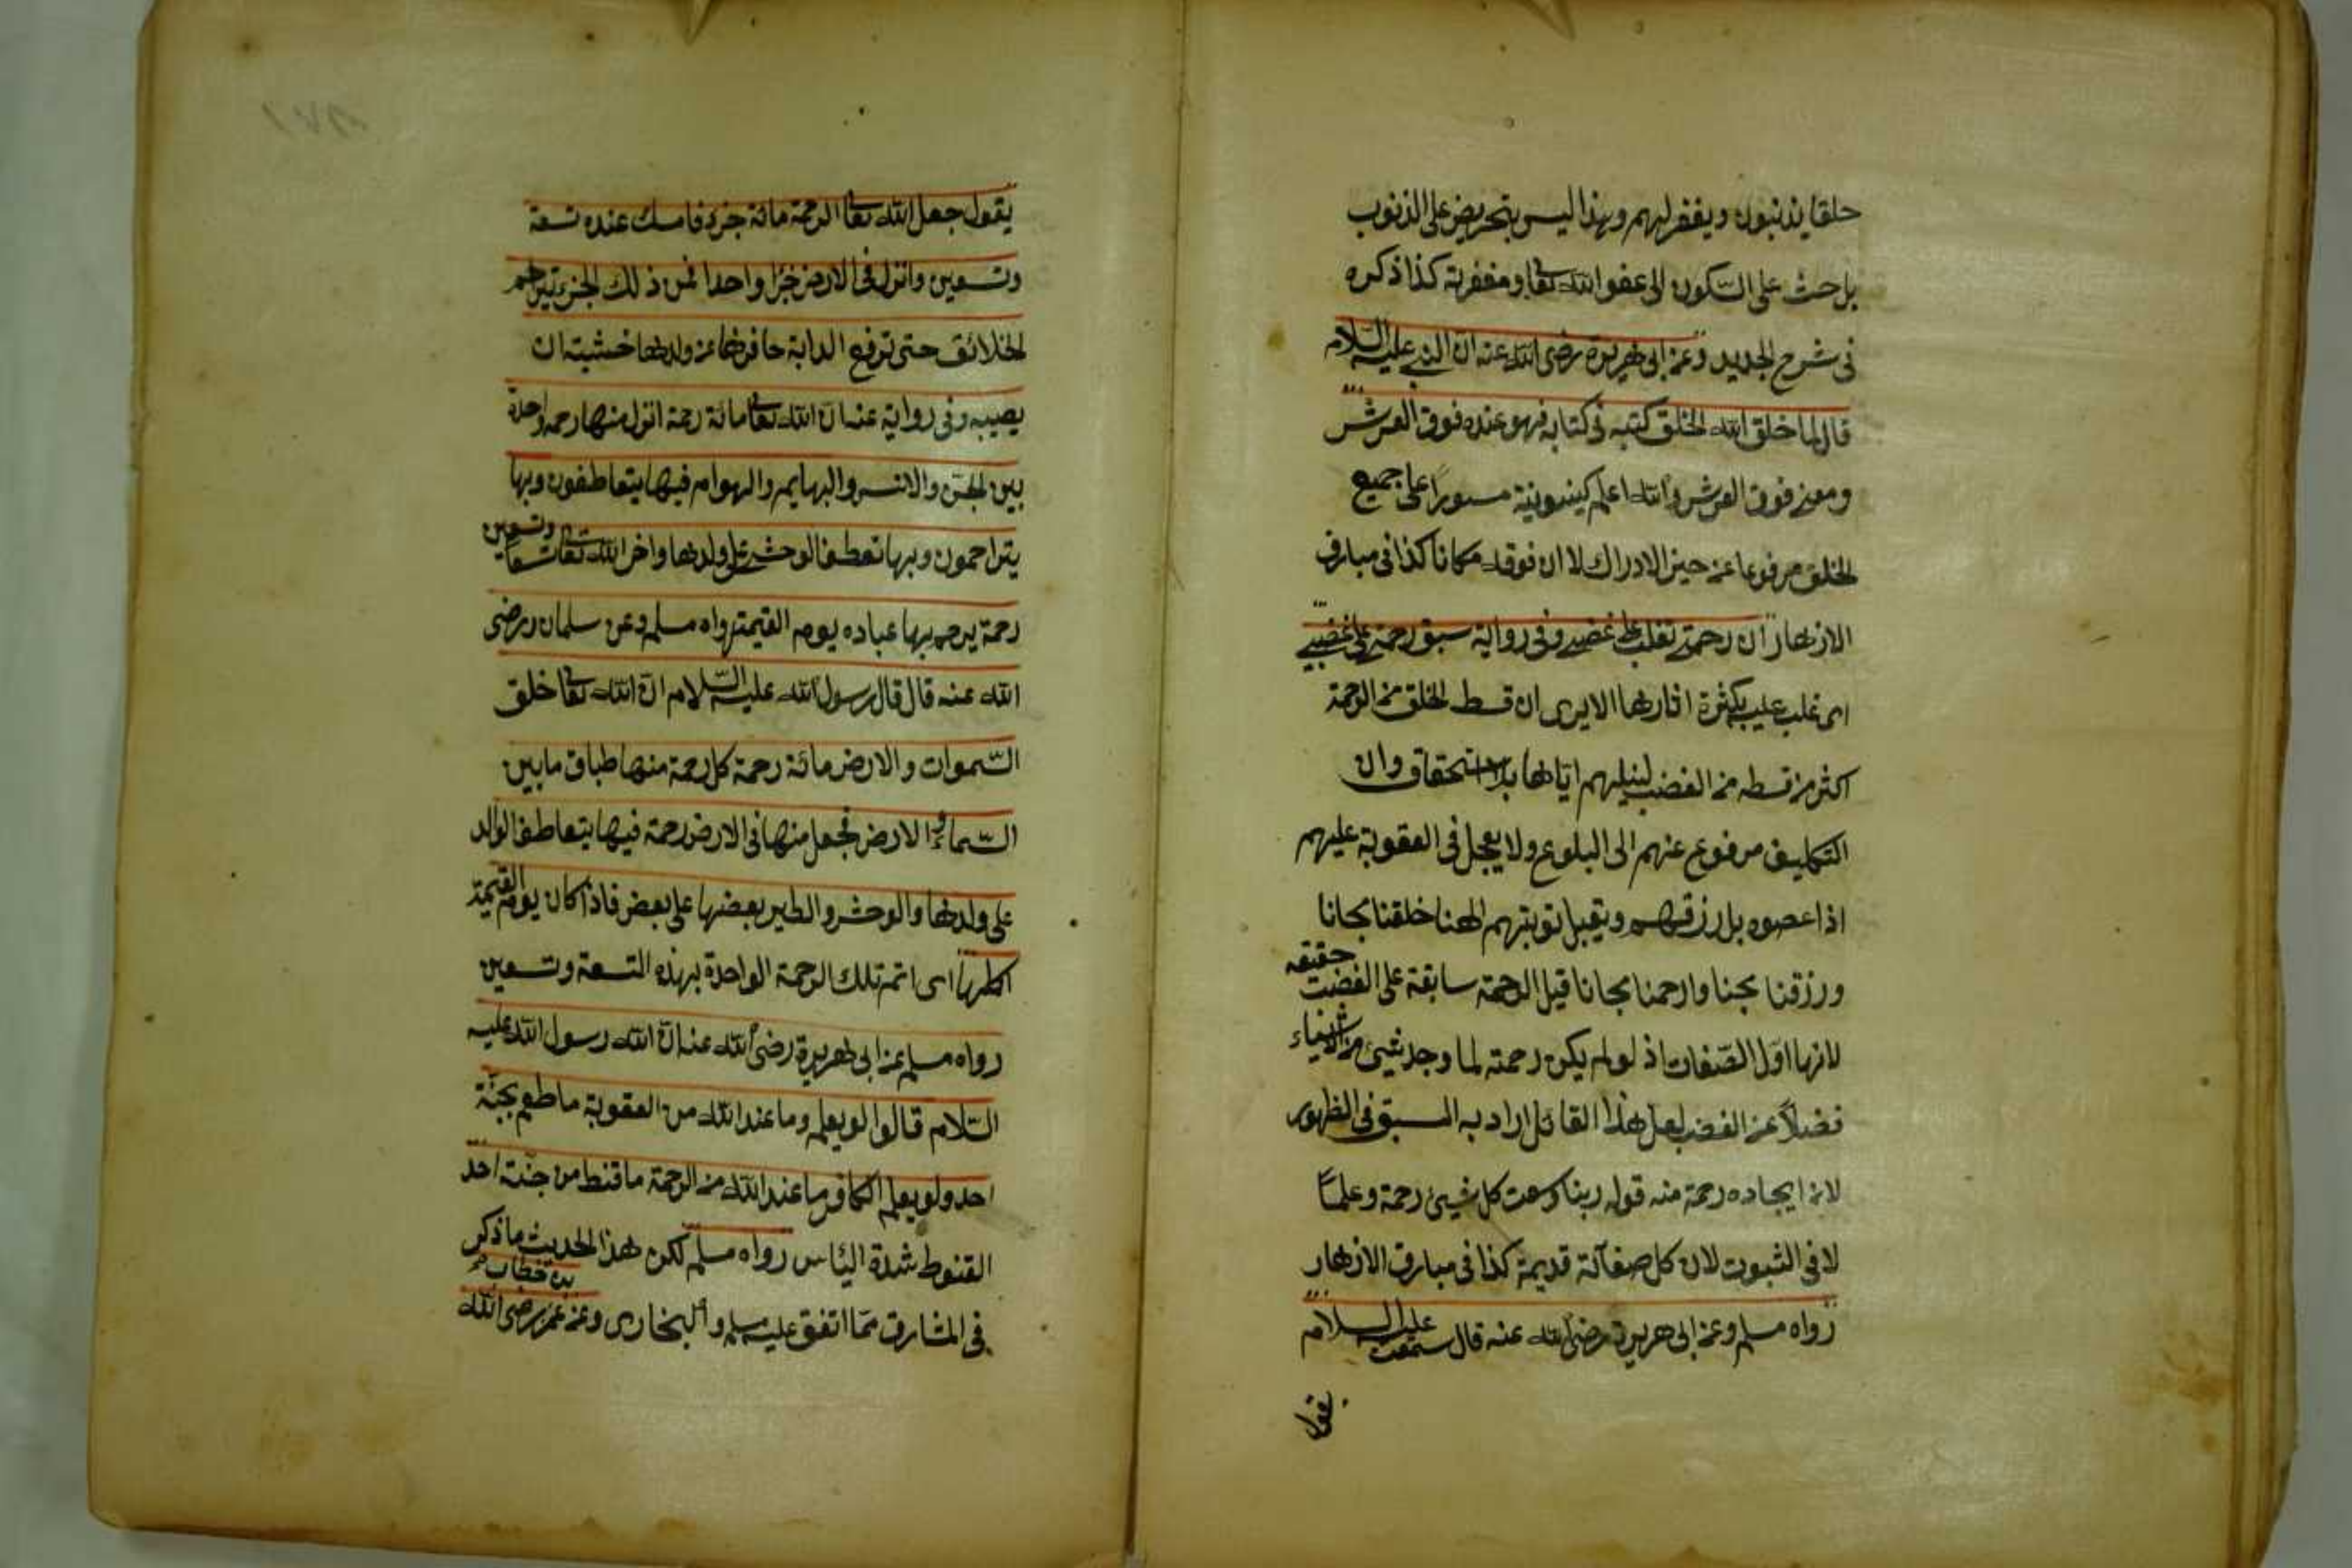 خلقا يذنبون ويغفر لهم وهذا ليس بتحريض على الذنوب
بل حث على السكون الى عفو الله تعا ومغفرته كذا ذكره
فى شرح الجديد وعن ابى هريرة رضى الله عنه ان النبى عليه السلام
قال لما خلق الله الخلق كتبه فى كتابه فهو عنده فوق العرش
ومعنى فوق العرش والله اعلم كينونية مستورا على جميع
الخلق مرفوعا عن حيز الادراك لا ان فوقه مكانا كذا فى مبارق
الازهار ان رحمتى تغلب على غضبى وفى رواية سبق رحمتى على غضبى
اى غلب عليه بكثرة اثارها الا يرى ان قسط الخلق من الرحمة
اكثر من قسطه من الغضب لنيلهم اياها بلا استحقاق وان
التكليف مرفوع عنهم الى البلوغ ولا يعجل فى العقوبة عليهم
اذا عصوه بل رزقهم ويقبل توبتهم الهنا خلقنا مجانا
ورزقنا مجنا وارحمنا مجانا قيل الرحمة سابقة على الغضب حقيقه
لانها اول الصفات اذ لو لم يكن رحمته لما وجد شيئ من الاشياء
فضلا عن الغضب لعل هذا القائل اراد به السبق فى الظهور
لانه ايجاده رحمة منه قوله ربنا وسعت كل شيئ رحمة وعلما
لا فى الثبوت لان كل صفاته قديمة كذا فى مبارق الازهار
رواه مسلم وعن ابى هريرة رضى الله عنه قال سمعت عليه السلام
يقول
يقول جعل الله تعا الرحمة مائة جزء فامسك عنده تسعة
وتسعين وانزل فى الارض جزا واحدا فمن ذلك الجزء يتراحم
الخلائق حتى ترفع الدابة حافرها عن ولدها خشيته ان
يصيبه وفى رواية عنه ان الله تعا مائة رحمة انزل منها رحمة واحدة
بين الجن والانس والبهايم والهوام فيها يتعاطفون وبها
يتراحمون وبها تعطف الوحش على ولدها واخر الله تعا تسعا وتسعين
رحمة يرحم بها عباده يوم القيمة رواه مسلم وعن سلمان رضى
الله عنه قال قال رسول الله عليه السلام ان الله تعا خلق
السموات والارض مائة رحمة كل رحمة منها طباق ما بين
السماء والارض فجعل منها فى الارض رحمة فيها يتعاطف الوالد
على ولدها والوحش والطير بعضها على بعض فاذا كان يوم القيمة
اكملها اى اتم تلك الرحمة الواحدة بهذه التسعة وتسعين
رواه مسلم عن ابى هريرة رضى الله عنه ان الله رسول الله عليه
السلام قالوا لو يعلم وما عند الله من العقوبة ما طمع بجنة
احد ولو يعلم الكافر ما عند الله من الرحمة ما قنط من جنته احد
القنوط شدة اليئاس رواه مسلم لكن هذا الحديث ما ذكر
فى المشارق مما اتفق عليه مسلم والبخارى وعن عمر بن خطاب رضى الله